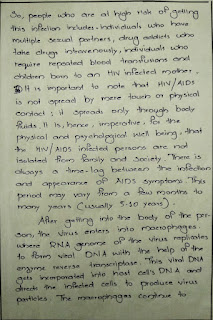 So, people who are at high risk of getting
this infection includes: individuals who have
multiple sexual partners, drug addicts who
take drugs intravenously, individuals who
require repeated blood transfusions and
children born to an HIV infected mother.
It is important to note that HIV/AIDS
is not spread by mere touch or physical
contact; it spreads only through body
fluids. It is, hence, imperative, for the
physical and psychological well being, that
the HIV/AIDS infected persons are not
isolated from family and society. There is
always a time-lag between the infection
and appearance of AIDS symptoms. This
period may vary from a few months to
many years (usually 5-10 years).
After getting into the body of the per-
son, the virus enters into macrophages
where RNA genome of the virus replicates
to form viral DNA with the help of the
enzyme reverse transcriptase. This viral DNA
gets incorporated into host cell's DNA and
directs the infected cells to produce virus
particles. The macrophages continue to